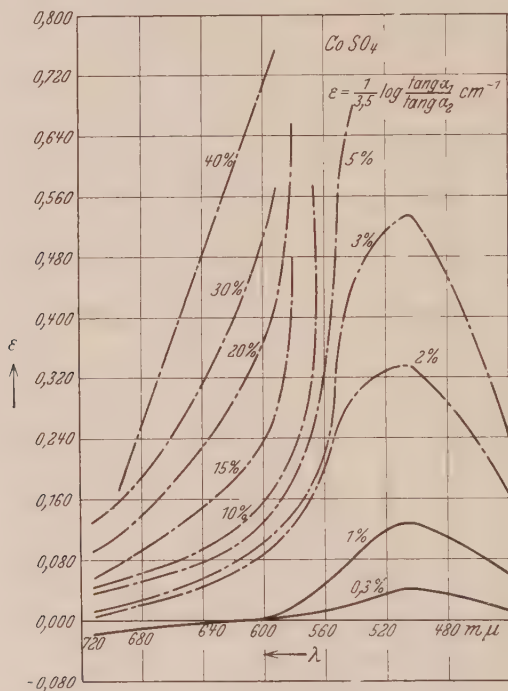 0,800
0,720
0,640
0,560
0,480
0,400
0,320
0,240
0,160
0,080
0,000
-0,080
ε
Co SO₄
ε = 1/3,5 log tang α₁/tang α₂ cm⁻¹
40%
30%
20%
15%
10%
5%
3%
2%
1%
0,3%
720 680 640 600 560 520 480 mμ
λ